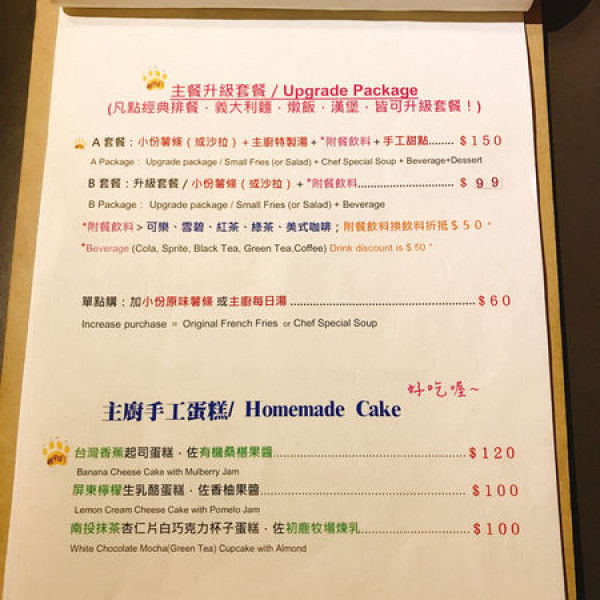 主餐升級套餐 / Upgrade Package
(凡點經典排餐﹑義大利麵﹑燉飯﹑漢堡﹑皆可升級套餐！)
A 套餐：小份薯條（或沙拉）＋主廚特製湯＋*附餐飲料＋手工甜點........ $150
A Package： Upgrade package / Small Fries (or Salad) + Chef Special Soup + Beverage+Dessert
B 套餐：升級套餐 / 小份薯條（或沙拉）＋*附餐飲料............................ $ 99
B Package： Upgrade package / Small Fries (or Salad) + Beverage
*附餐飲料 > 可樂、雪碧、紅茶、綠茶、美式咖啡；附餐飲料換飲料折抵＄50 *
*Beverage (Cola, Sprite, Black Tea, Green Tea,Coffee) Drink discount is $ 50 *
單點購：加小份原味薯條 或主廚每日湯 ...................................................$60
Increase purchase = Original French Fries or Chef Special Soup
好吃喔~
主廚手工蛋糕/ Homemade Cake
台灣香蕉起司蛋糕﹑佐有機桑椹果醬.......................................................$120
Banana Cheese Cake with Mulberry Jam
屏東檸檬生乳酪蛋糕﹑佐香柚果醬..........................................................$100
Lemon Cream Cheese Cake with Pomelo Jam
南投抹茶杏仁片白巧克力杯子蛋糕﹑佐初鹿牧場煉乳..............................$100
White Chocolate Mocha(Green Tea) Cupcake with Almond